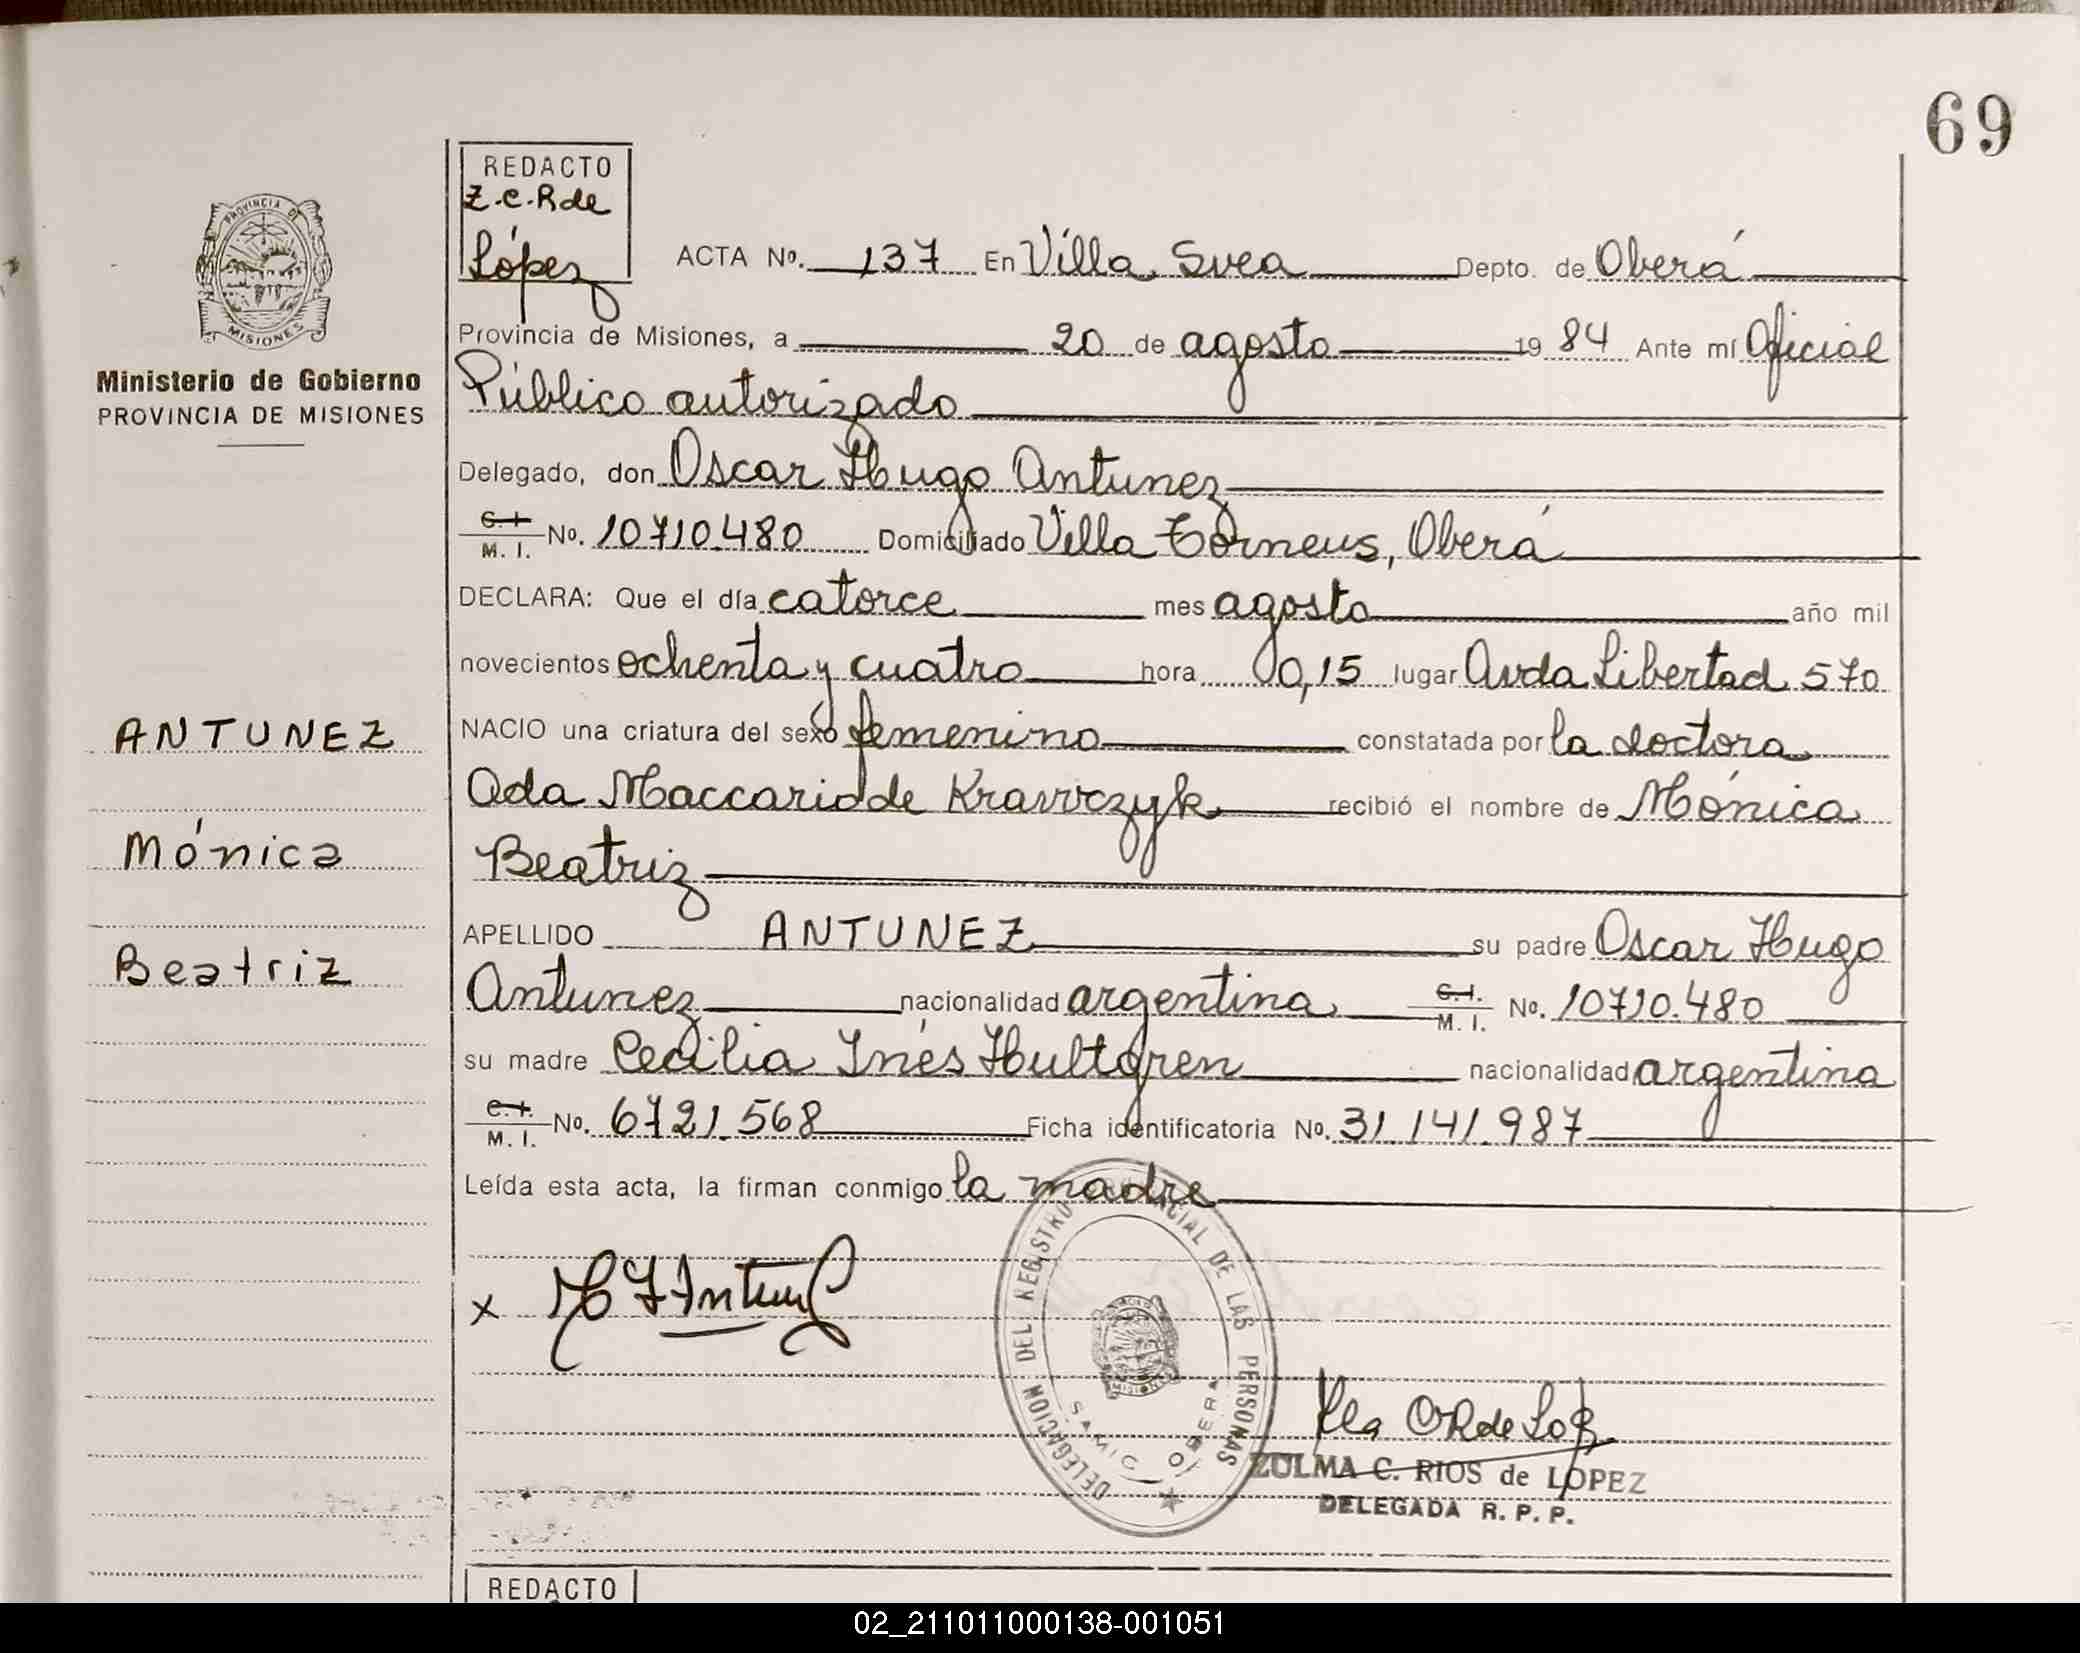 69
REDACTO
Z.C.R de
López
PROVINCIA DE
MISIONES
Ministerio de Gobierno
PROVINCIA DE MISIONES
ACTA Nº. 137 En Villa Svea Depto. de Oberá
Provincia de Misiones, a 20 de agosto 1984 Ante mí Oficial
Público autorizado
Delegado, don Oscar Hugo Antunez
C.I.
M. I. Nº. 10710.480 Domiciliado Villa Torneus, Oberá
DECLARA: Que el día catorce mes agosto año mil
novecientos ochenta y cuatro hora 00,15 lugar Avda Libertad 570
ANTUNEZ
NACIO una criatura del sexo femenino constatada por la doctora
Ada Maccarid de Krawczyk recibió el nombre de Mónica
Mónica
Beatriz
APELLIDO ANTUNEZ su padre Oscar Hugo
Beatriz
Antunez nacionalidad argentina C.I. M. I. Nº. 10710.480
su madre Cecilia Inés Hultgren nacionalidad argentina
C.I.
M. I. Nº. 6721.568 Ficha identificatoria Nº. 31.141.987
Leída esta acta, la firman conmigo la madre
x
DELEGACION DEL REGISTRO PROVINCIAL DE LAS PERSONAS
SAMIC OBERA
MISIONES
ZULMA C. RIOS de LOPEZ
DELEGADA R. P. P.
REDACTO
02_211011000138-001051